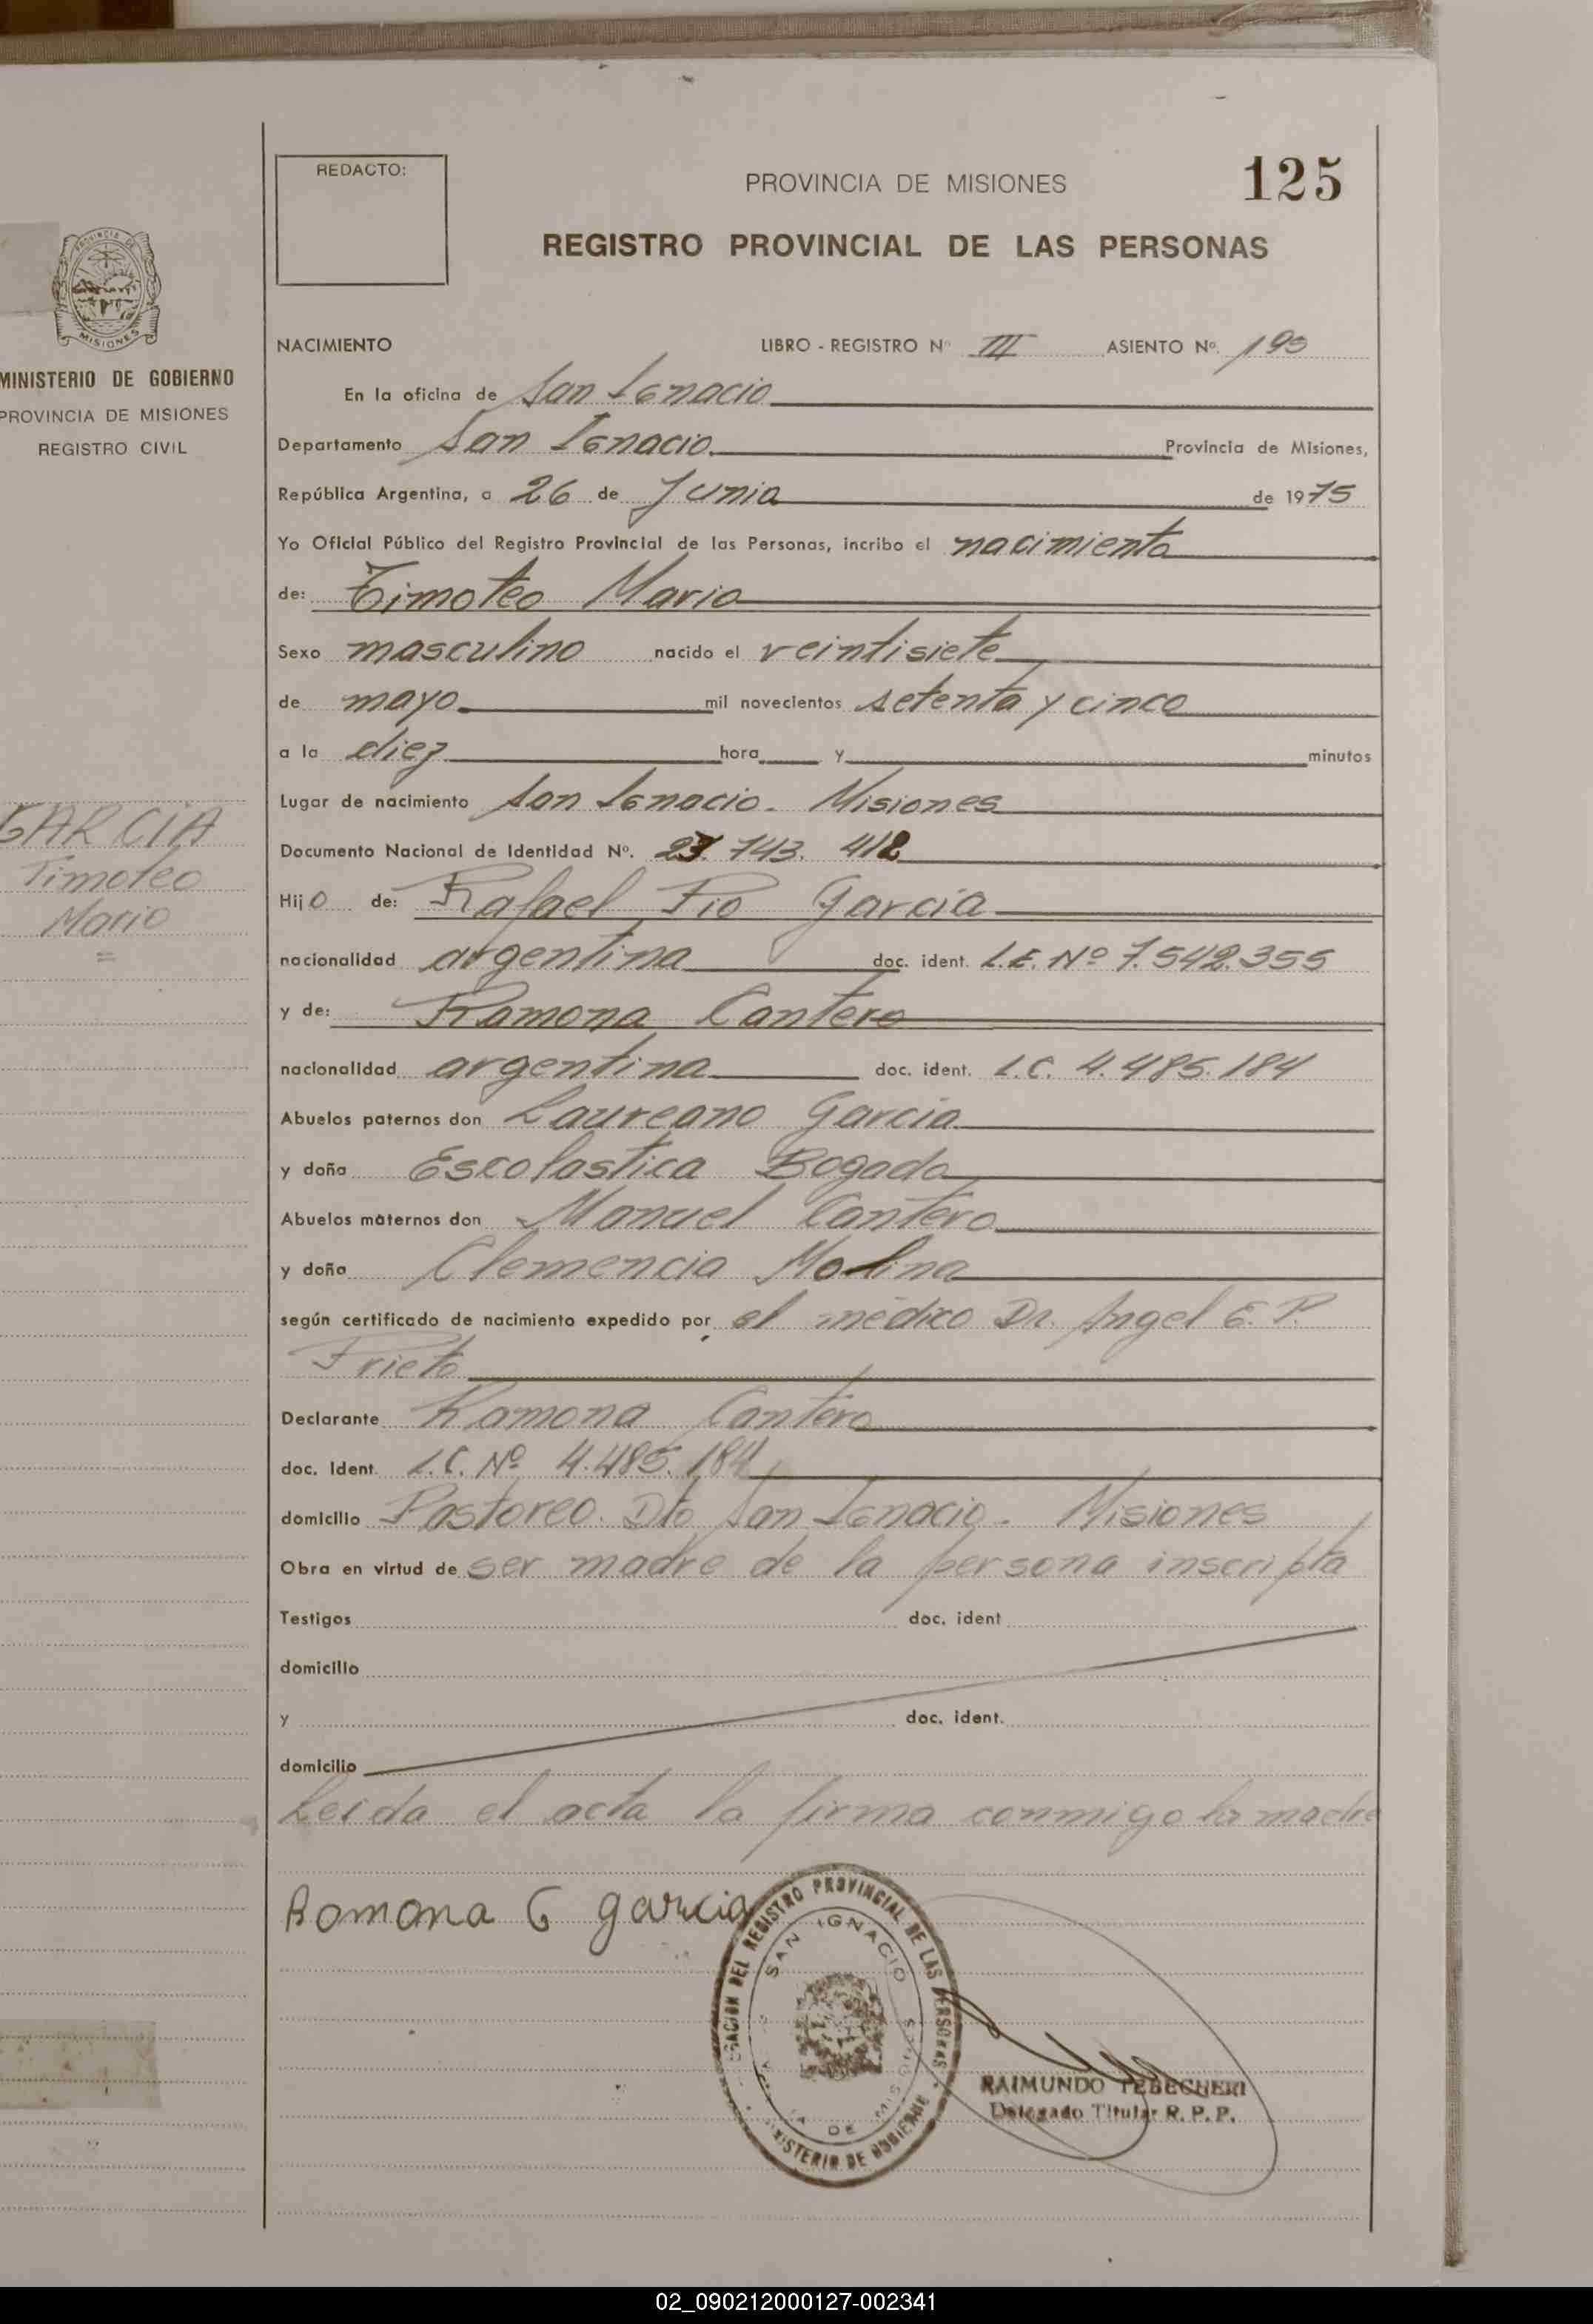 REDACTO:
PROVINCIA DE MISIONES
125
REGISTRO PROVINCIAL DE LAS PERSONAS
PROVINCIA DE
MISIONES
MINISTERIO DE GOBIERNO
PROVINCIA DE MISIONES
REGISTRO CIVIL
GARCIA
Timoteo
Mario
=
NACIMIENTO LIBRO - REGISTRO Nº III ASIENTO Nº.
En la oficina de San Ignacio
Departamento San Ignacio Provincia de Misiones,
República Argentina, a 26 de Junio de 1975
Yo Oficial Público del Registro Provincial de las Personas, incribo el nacimiento
de: Timoteo Mario
Sexo masculino nacido el veintisiete
de mayo mil novecientos setenta y cinco
a la diez hora y minutos
Lugar de nacimiento San Ignacio. Misiones
Documento Nacional de Identidad Nº. 23.743.412
Hijo de: Rafael Pio Garcia
nacionalidad argentina doc. ident. L.E. Nº 7.542.355
y de: Ramona Cantero
nacionalidad argentina doc. ident. L.C. 4.485.184
Abuelos paternos don Laureano Garcia
y doña Escolastica Bogado
Abuelos maternos don Manuel Cantero
y doña Clemencia Molina
según certificado de nacimiento expedido por el médico Dr. Angel E. P.
Prieto
Declarante Ramona Cantero
doc. Ident. L.C. Nº 4.485.184
domicilio Pastoreo. Dto San Ignacio. Misiones
Obra en virtud de ser madre de la persona inscripta
Testigos doc. ident
domicilio
y doc. ident.
domicilio
Leida el acta la firma conmigo la madre
Romona G garcia
REGISTRO PROVINCIAL DE LAS PERSONAS
SAN IGNACIO
DE MISIONES
MINISTERIO DE GOBIERNO
RAIMUNDO TEBECHERI
Delegado Titular R. P. P.
02_090212000127-002341